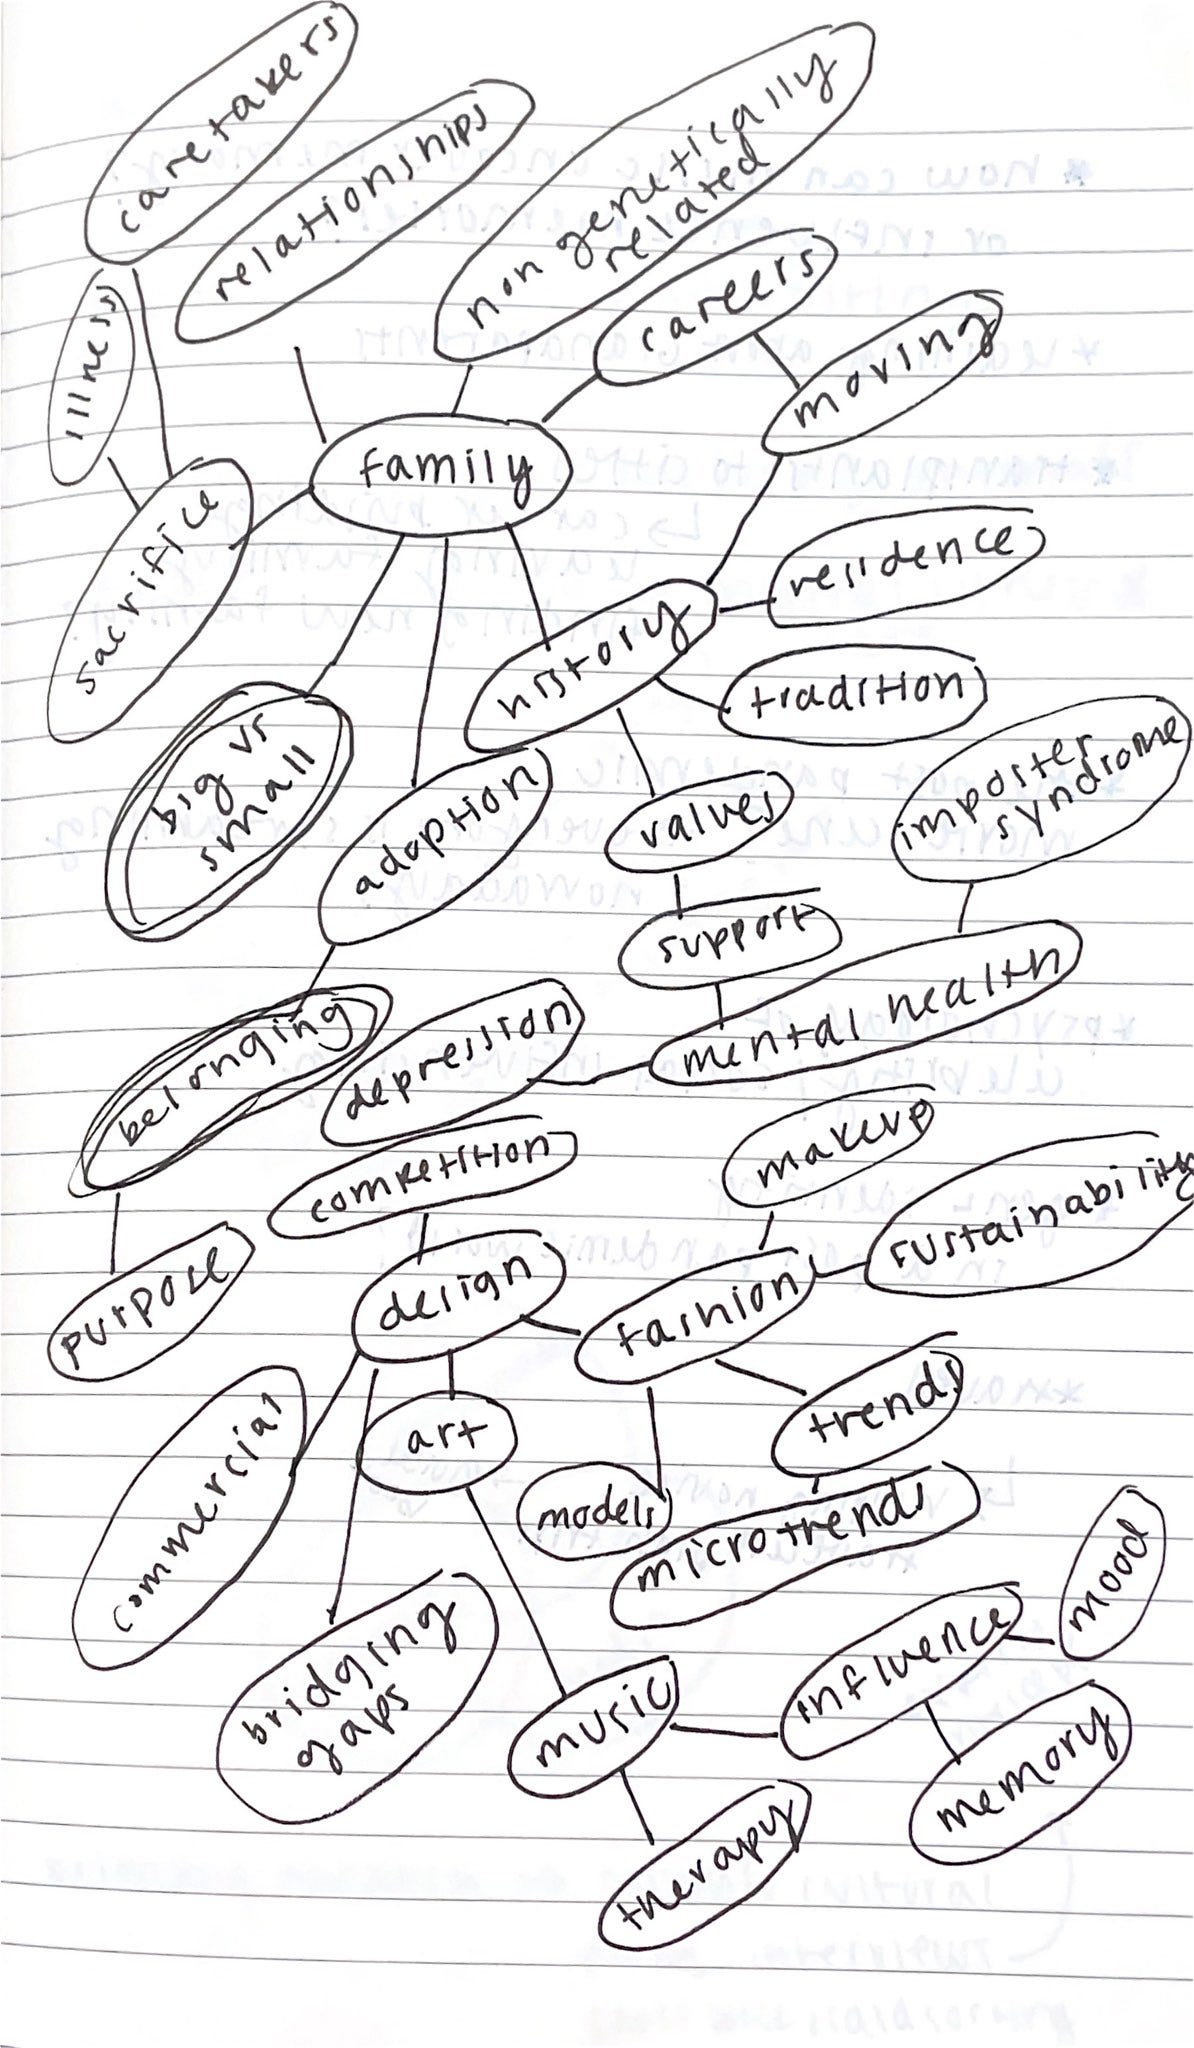 caretakers
relationships
non genetically
related
careers
illness
moving
family
sacrifice
residence
history
tradition
big vs
small
imposter
syndrome
values
adoption
support
mental health
belonging
depression
makeup
competition
sustainability
purpose
design
fashion
trends
commercial
art
models
microtrends
mood
bridging
gaps
influence
music
memory
therapy